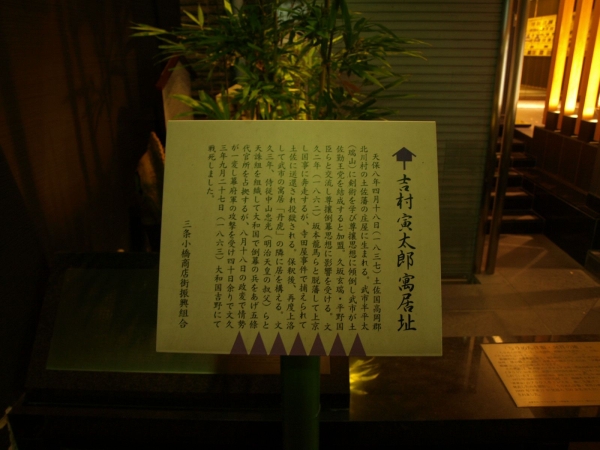 吉村寅太郎寓居址
天保八年四月十八日(一八三七)土佐国高岡郡
北川村の土佐藩の庄屋に生まれる。武市半平太
(瑞山)に剣術を学び尊攘思想に傾倒し武市が土
佐勤王党を結成すると加盟、久坂玄瑞・平野国
臣らと交流し尊攘倒幕思想に影響を受ける。文
久二年(一八六二)坂本龍馬らと脱藩して上京
し国事に奔走するが、寺田屋事件で捕えられて
土佐に送還され投獄される。保釈後、再度上洛
して武市の寓居「丹虎」の隣に居を構える。文
久三年、侍従中山忠光(明治天皇の叔父)らと
天誅組を組織して大和国で倒幕の兵をあげ五條
代官所を占拠するが、八月十八日の政変で情勢
が一変し幕府軍の攻撃を受け四十日余りで文久
三年九月二十七日(一八六三)大和国吉野にて
戦死しました。
三条小橋商店街振興組合